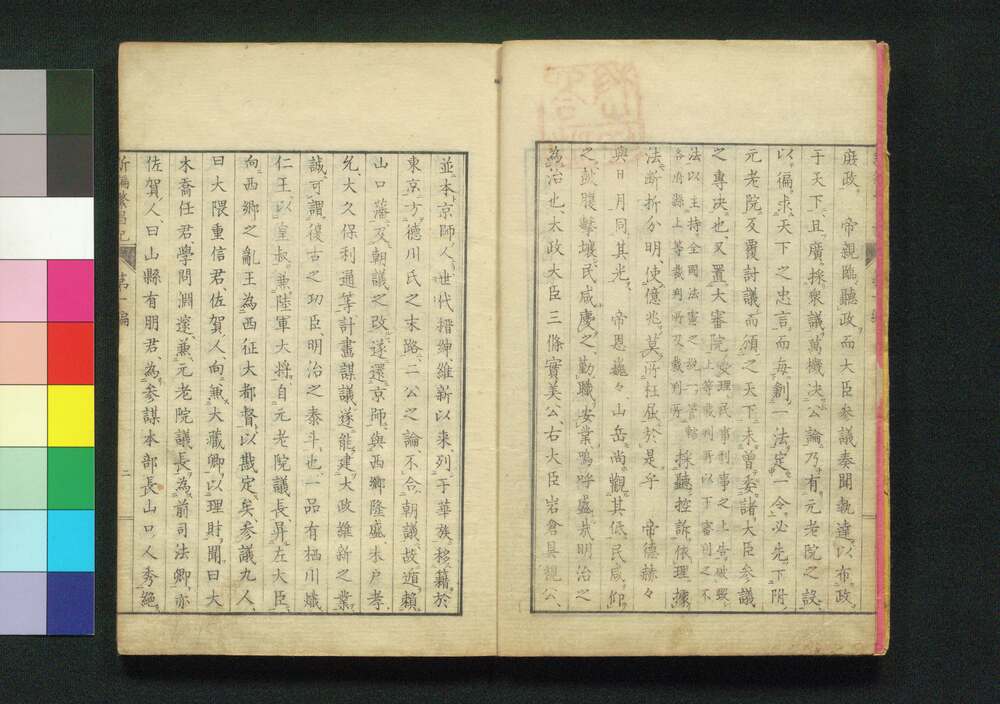 庭政。 帝親臨聽政。而大臣參議奏聞執達。以布政。
于天下。且廣採衆議。萬機决公論。乃有元老院之設。
以徧求天下之忠言。而每創一法。定一令。必先下附。
元老院。反覆討議。而頒之天下。未曾委諸大臣參議
之專决也。又置大審院
法。以主持全國法憲之
各府縣上等裁判所又裁判所 採聽控訴。依理據
法。斷折分明。使億兆莫所枉屈。於是乎 帝德赫々
與日月同其光。 帝恩巍々山岳尚觀其低。民咸仰
之。鼓腹擊壤。民咸慶之。勤職安業。嗚呼盛哉。明治之
為治也。太政大臣三條實美公。右大臣岩倉具視公。
並本京師人。世代搢紳。維新以來。列于華族。移籍於
東京。方德川氏之末路。二公之論。不合朝議。故遁賴
山口藩。及朝議之改。遂還京師。與西鄉隆盛木戶孝
允大久保利通等計畫謀議。遂能建大政維新之業。
誠可謂復古之功臣明治之泰斗也。一品有栖川熾
仁王以皇叔兼陸軍大將。自元老院議長昇左大臣。
向西鄉之亂。王為西征大都督。以戡定矣。參議九人。
曰大隈重信君。佐賀人。向兼大藏卿。以理財聞。曰大
木喬任君。學問淵邃。兼元老院議長。為前司法卿。亦
佐賀人。曰山縣有朋君。為參謀本部長。山口人。秀絕
新編繁昌記 第一編 二